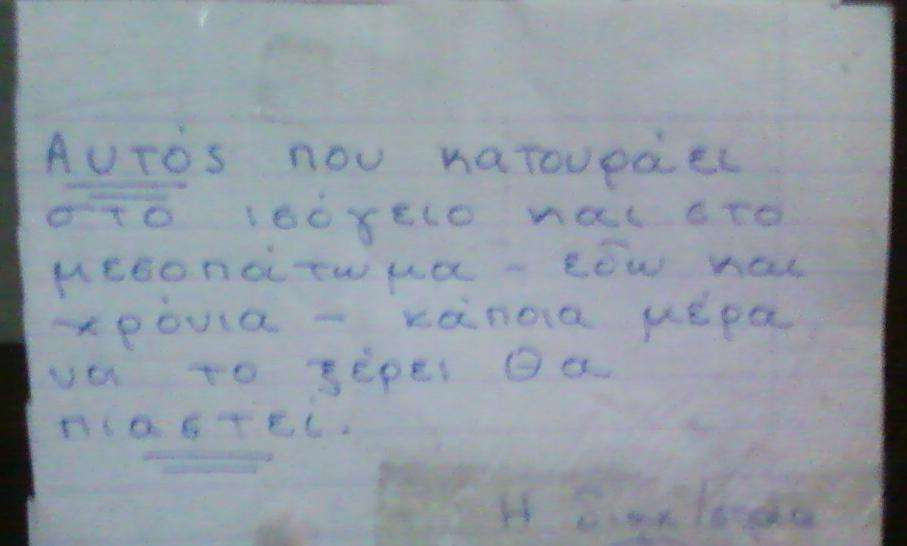 Αυτός που κατουράει
στο ισόγειο και στο
μεσοπάτωμα - εδω και
χρόνια - κάποια μέρα
να το ξέρει θα
πιαστεί.
Η